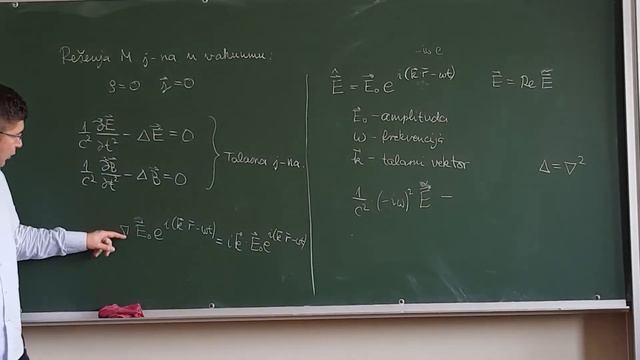 Rešenja M. j-na u vakuumu:
ρ=0 j⃗=0
1/c² ∂²E⃗/∂t² − ΔE⃗ = 0
1/c² ∂²B⃗/∂t² − ΔB⃗ = 0
Talasna j-na.
∇ E⃗₀e^{i(k⃗·r⃗−ωt)} = ik⃗·E⃗₀e^{i(k⃗·r⃗−ωt)}
−iω e
Ẽ⃗ = E⃗₀ e^{i(k⃗·r⃗−ωt)} E⃗ = Re Ẽ⃗
E⃗₀ - amplituda
ω - frekvencija
k⃗ - talasni vektor
Δ = ∇²
1/c² (−iω)² Ẽ⃗ −